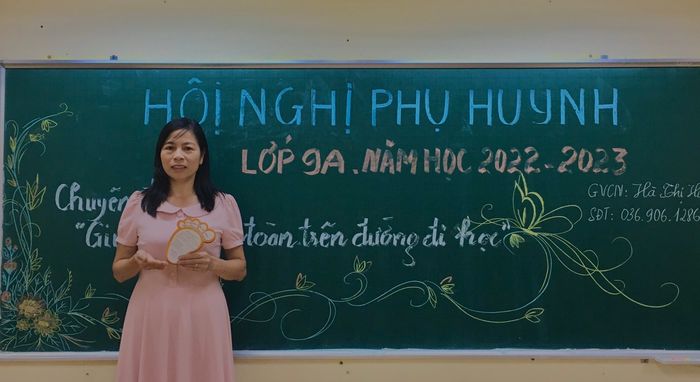 HỘI NGHỊ PHỤ HUYNH
LỚP 9A. NĂM HỌC 2022-2023
GVCN: Hà Thị
SĐT: 036.906.1286
Chuyên
" toàn trên đường đi học"